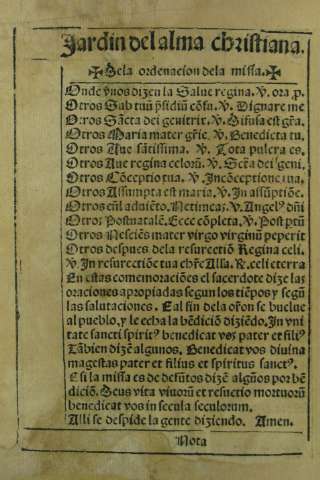 Jardin del alma christiana.
✠ Dela ordenacion dela missa. ✠
Onde vnos dizen la Salue regina. V. ora p.
Otros Sub tuū p̄sidiū cōfu. V. Dignare me
Otros Sācta dei genitrix. V. Difusa est gr̄a.
Otros Maria mater gr̄ie. V. Benedicta tu
Otros Aue sātissima. V. Tota pulcra es
Otros Aue regina celorū. V. Sctā dei geni.
Otros Cōceptio tua. V. In cōceptione tua.
Otros Assumpta est maria. V. In assūptiōe.
Otros enl aduiēto. Ne timeas. V. Angelꝰ dn̄i
Otros Post natalē. Ecce cōpleta. V. Post ptū
Otros Nesciēs mater virgo virginū peperit
Otros despues dela resurectiō Regina celi.
V. In resurectiōe tua chr̄e Alla. R. celi et terra
En estas comemoraciōes el sacerdote dize las
oraciones apropiadas segun los tiēpos y segū
las salutaciones. E al fin dela oron se buelue
al pueblo, y le echa la bēdiciō diziēdo. In vni
tate sancti spiritꝰ benedicat vos pater et filiꝰ
Tābien dizē algunos, Benedicat vos diuina
magestas pater et filius et spiritus sanctꝰ.
E si la missa es de defūtos dizē algūos por bē
diciō. Deus vita viuorū et resurectio mortuorū
benedicat vos in secula seculorum.
Alli se despide la gente diziendo. Amen.
Nota